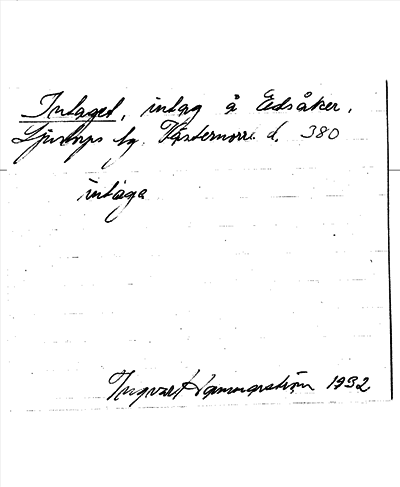 Intaget, intag å Edsåker,
Ljustorps tg. Västernorrl. l. 380
intaga
Ingvar Hammarström 1932